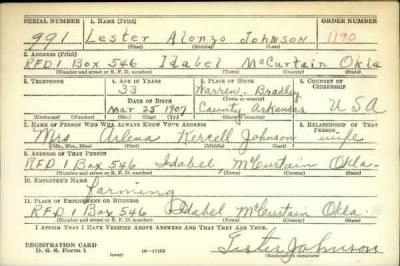 SERIAL NUMBER 1. NAME (Print) ORDER NUMBER
991 Lester Alonzo Johnson 1190
(First) (Middle) (Last)
2. ADDRESS (Print)
RFD 1 Box 546 Idabel McCurtain Okla
(Number and street or R. F. D. number) (Town) (County) (State)
3. TELEPHONE 4. AGE IN YEARS 5. PLACE OF BIRTH 6. COUNTRY OF CITIZENSHIP
33 Warren Bradley
DATE OF BIRTH (Town or county)
Mar 25 1907 County Arkansas USA
(Exchange) (No.) (Mo.) (Day) (Yr.) (State or country)
7. NAME OF PERSON WHO WILL ALWAYS KNOW YOUR ADDRESS 8. RELATIONSHIP OF THAT PERSON
Mrs Arlena Kercell Johnson wife
(Mr., Mrs., Miss) (First) (Middle) (Last)
9. ADDRESS OF THAT PERSON
RFD 1 Box 546 Idabel McCurtain Okla.
(Number and street or R. F. D. number) (Town) (County) (State)
10. EMPLOYER'S NAME
farming
11. PLACE OF EMPLOYMENT OR BUSINESS
RFD 1 Box 546 Idabel McCurtain Okla.
(Number and street or R. F. D. number) (Town) (County) (State)
I AFFIRM THAT I HAVE VERIFIED ABOVE ANSWERS AND THAT THEY ARE TRUE.
REGISTRATION CARD
D. S. S. Form 1 (over) Lester Johnson
(Registrant's signature)